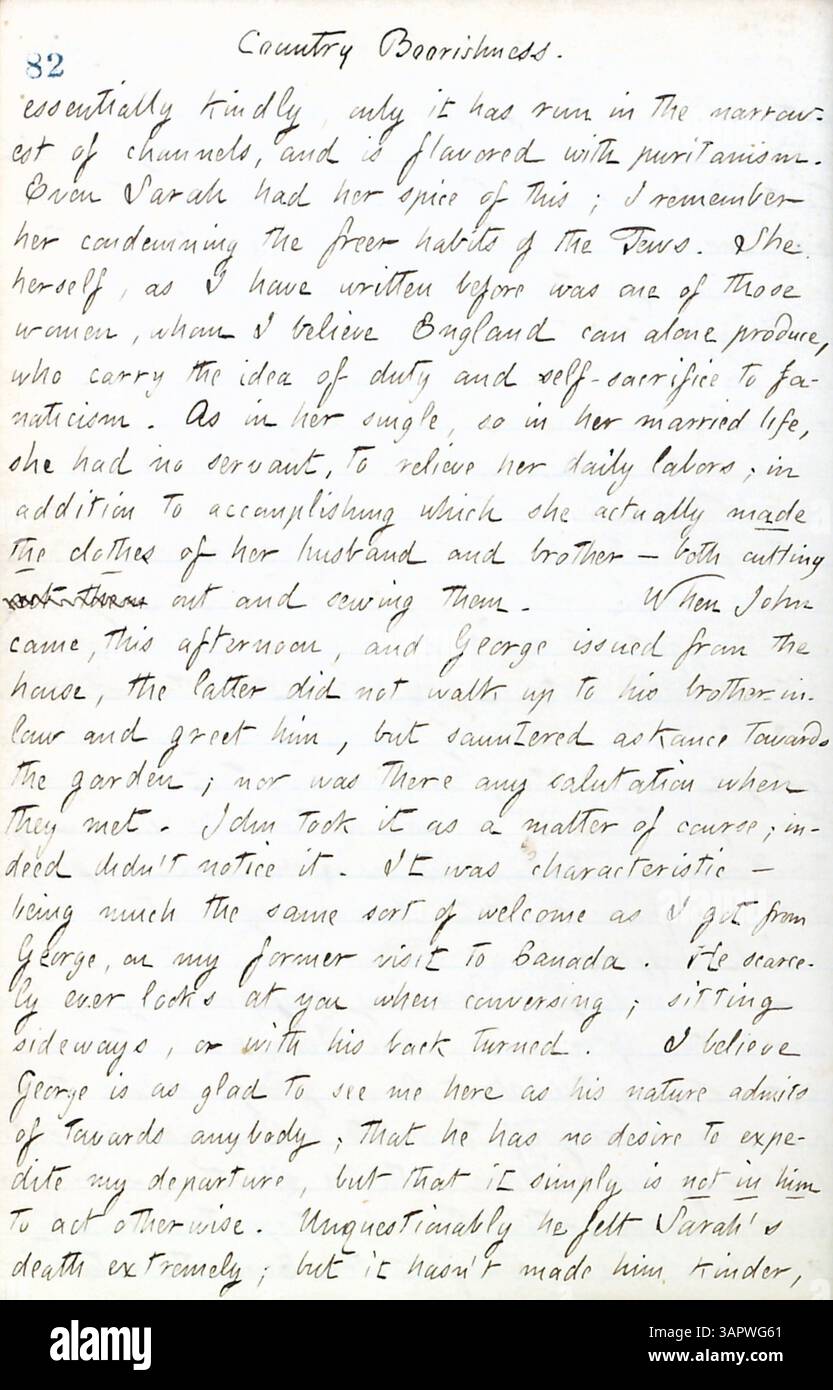 Country Boorishness.
82
essentially kindly, only it has run in the narrow-
est of channels, and is flavored with puritanism.
Even Sarah had her spice of this; I remember
her condemning the freer habits of the Tews. She
herself, as I have written before was one of those
women, whom I believe England can alone produce,
who carry the idea of duty and self-sacrifice to fa-
naticism. As in her single, so in her married life,
she had no servant, to relieve her daily labors; in
addition to accomplishing which she actually made
the clothes of her husband and brother — both cutting
out and sewing them. When John
came, this afternoon, and George issued from the
house, the latter did not walk up to his brother-in-
law and greet him, but sauntered askance towards
the garden; nor was there any salutation when
they met. John took it as a matter of course; in-
deed didn't notice it. It was characteristic —
being much the same sort of welcome as I got from
George, on my former visit to Canada. He scarce-
ly ever looks at you when conversing; sitting
sideways, or with his back turned. I believe
George is as glad to see me here as his nature admits
of towards anybody; that he has no desire to expe-
dite my departure, but that it simply is not in him
to act otherwise. Unquestionably he felt Sarah's
death extremely; but it hasn't made him kinder,
alamy
Image ID: 3APWG61
www.alamy.com